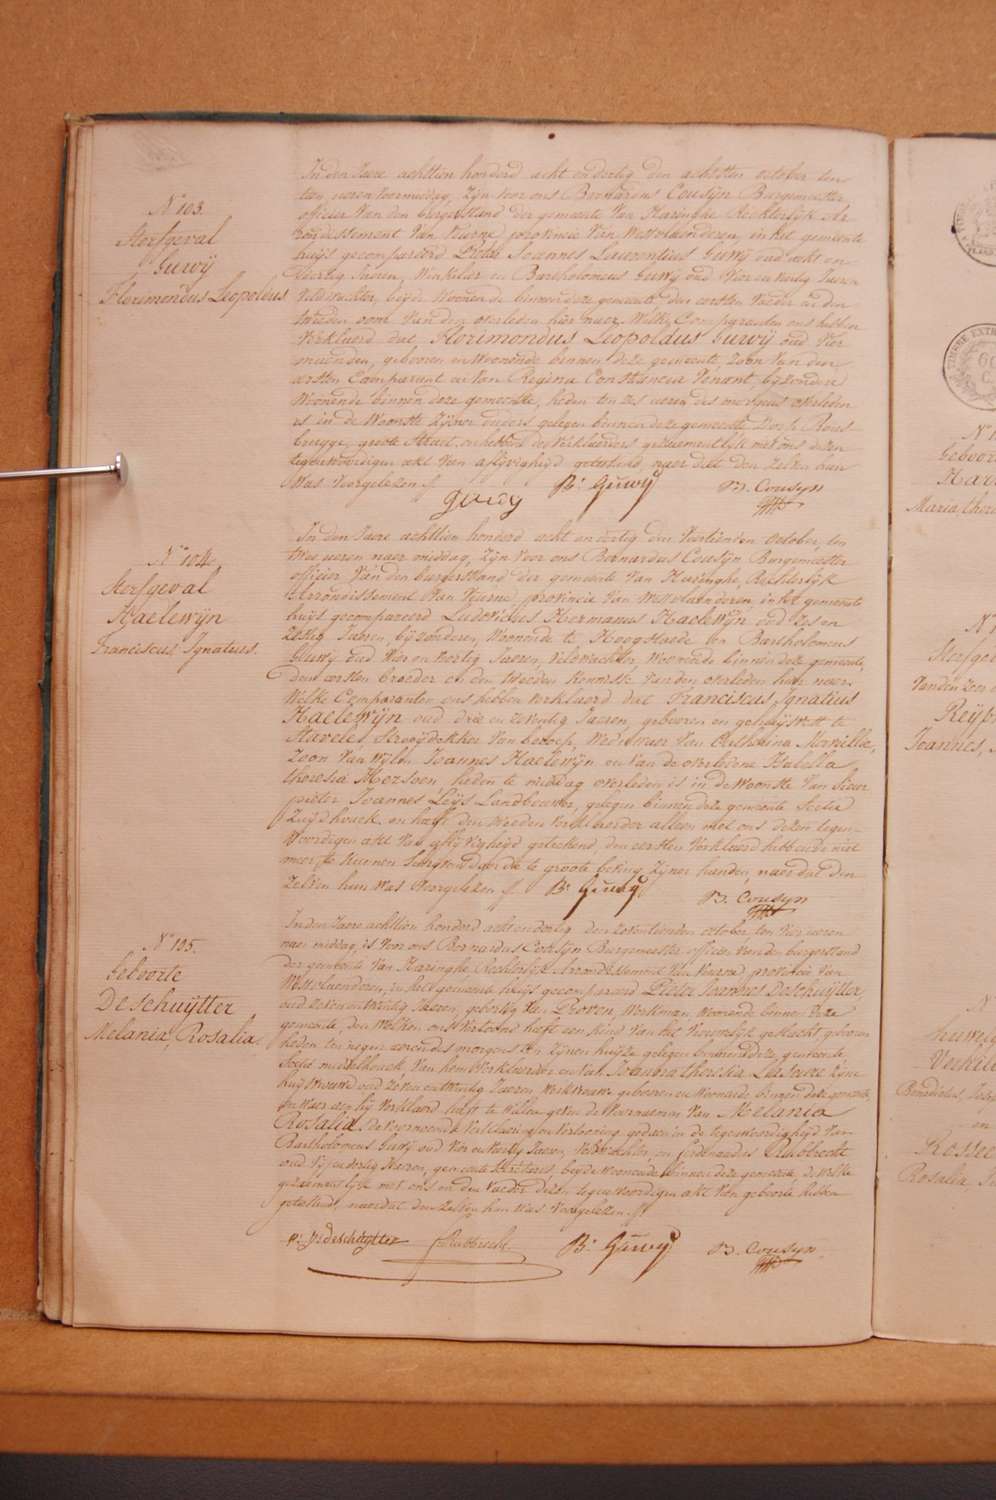 N° 103.
Sterfgeval
Guwÿ
Florimondus Leopoldus
In den Jaere achttien honderd acht en dertig den achtsten october ten
tien ueren voormiddag, Zÿn voor ons Bernardus Cousÿn Burgemeester
officier van den burgerstand der gemeente van Haringhe Rechterlÿk Ar
rondissement van Veurne provincie van Westvlaenderen, in het gemeente
huÿs gecompareerd Pieter Joannes Laurentius Guwÿ oud acht en
dertig Jaeren, Winkelier en Bartholomeus Guwÿ oud vier en veertig Jaeren
Veldwachter, beÿde Woonende binnen deze gemeente den eersten Vaeder en den
tweeden oom van den overleden hier naer. Welke Comparanten ons hebben
verklaerd dat Florimondus Leopoldus Guwÿ oud vier
maenden, geboren en Woonende binnen deze gemeente, Zoon van den
eersten Comparant en van Regina Constancia Venant, bÿzondere
Woonende binnen deze gemeente, heden ten zes ueren des morgens overleden
is in de Woonste Zÿner ouders gelegen binnen deze gemeente Dorp Rous
brugge, groote Straet, en hebben de verklaerders gezaementlÿk met ons dezen
tegenwoordigen akt van aflÿvigheÿd geteekend, naer dat den zelven hun
Was voorgelezen ./.
guwÿ B: Guwÿ B. Cousyn
N° 104.
Sterfgeval
Haelewÿn
Franciscus Ignatius.
In den Jaere achttien honderd acht en dertig den veertienden October, ten
twee ueren naer middag, Zÿn voor ons Bernardus Cousÿn Burgemeester
officier van den burgerstand der gemeente van Haringhe, Rechterlÿk
Arrondissement van Veurne, provincie van Westvlaenderen, in het gemeente
huÿs gecompareerd Ludovicus Hermanus Haelewÿn oud zes en
zestig Jaeren, bÿzonderen, Woonende te Hoogstaede en Bartholomeus
Guwÿ oud vier en veertig Jaeren, veldwachter, Woonende binnen deze gemeente,
den eersten broeder en den tweeden kennisse van den overleden hier naer.
Welke Comparanten ons hebben verklaerd dat Franciscus, Ignatius
Haelewÿn oud drie en zeventig Jaeren, geboren en gehuÿsvest te
Stavele, Strooÿdekker van beroep, Weduwaer van Catharina
Zoon van wÿlen Joannes Haelewÿn en van de overledene Isabella
theresia heden te middag overleden is in de Woonste van Sieur
pieter Joannes Leÿs Landbouwer, gelegen binnen deze gemeente Sectie
Zuÿdhouck en heeft den tweeden verklaerder alleen met ons dezen tegen-
Woordigen akt van aflÿvigheÿd geteekend, den eersten verklaerd hebbende niet
meer te kunnen schrÿven door de te groote beving Zÿner handen, naer dat den
zelven hun was voorgelezen ./. B: Guwÿ B. Cousyn
N° 105.
Geboorte
Deschuÿtter
Melania, Rosalia.
In den Jaere achttien honderd acht en dertig den zeventienden october ten vier ueren
naer middag, is voor ons Bernardus Cousÿn Burgemeester officier van den burgerstand
der gemeente van Haringhe Rechterlÿk Arrondissement van Veurne provincie van
Westvlaenderen, in het gemeente huÿs gecompareerd Pieter Joannes Deschuÿtter,
oud zeven en twintig Jaeren, geboortig van Proven, Werkman, Woonende binnen deze
gemeente, den Welken ons vertoond heeft een kind van het vrouwelÿk geslacht geboren
heden ten negen ueren des morgens in Zÿnen huÿze gelegen binnen deze gemeente
Sectie middelhouck van hem verklaerder en van Joanna theresia Zÿne
huÿsvrouwe oud zeven en twintig Jaeren Werkvrouwe geboren en Woonende binnen deze gemeente
en waer aen hÿ verklaerd heeft te willen geven de voornaemen van Melania
Rosalia. De voornoemde verklaering en vertooning gedaen in de tegenwoordigheÿd van
Bartholomeus Guwÿ oud vier en veertig Jaeren, veldwachter, en ferdinandus Rubbrecht
oud vÿf en dertig Jaeren, gemeente Secretaris, beÿde Woonende binnen deze gemeente, de Welke
gezaementlÿk met ons en den vaeder dezen tegenwoordigen akt van geboorte hebben
geteekend, naer dat den zelven hun was voorgelezen ./.
p: Js deschuytter f Rubbrecht. B: Guwÿ B. Cousyn
TIMBRE EXTR
60
C
Geboorte
Maria, there
Sterfgeval
Joannes,
Rosalia,